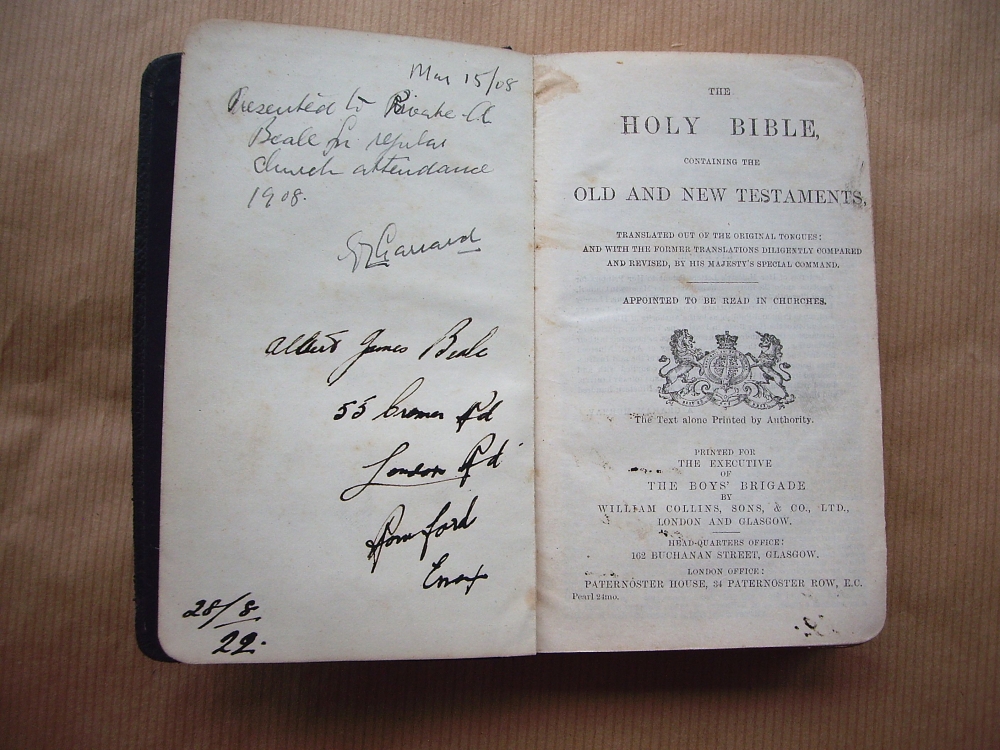 Mar 15/08
Presented to Private A
Beale for regular
church attendance
1908.
Garrard
Albert James Beale
55 Cromer Rd
London Rd
Romford
Essex
28/8
22.
THE
HOLY BIBLE,
CONTAINING THE
OLD AND NEW TESTAMENTS,
TRANSLATED OUT OF THE ORIGINAL TONGUES:
AND WITH THE FORMER TRANSLATIONS DILIGENTLY COMPARED
AND REVISED, BY HIS MAJESTY'S SPECIAL COMMAND.
APPOINTED TO BE READ IN CHURCHES.
The Text alone Printed by Authority.
PRINTED FOR
THE EXECUTIVE
OF
THE BOYS' BRIGADE
BY
WILLIAM COLLINS, SONS, & CO., LTD.,
LONDON AND GLASGOW.
HEAD-QUARTERS OFFICE:
162 BUCHANAN STREET, GLASGOW.
LONDON OFFICE:
PATERNOSTER HOUSE, 34 PATERNOSTER ROW, E.C.
Pearl 24mo.